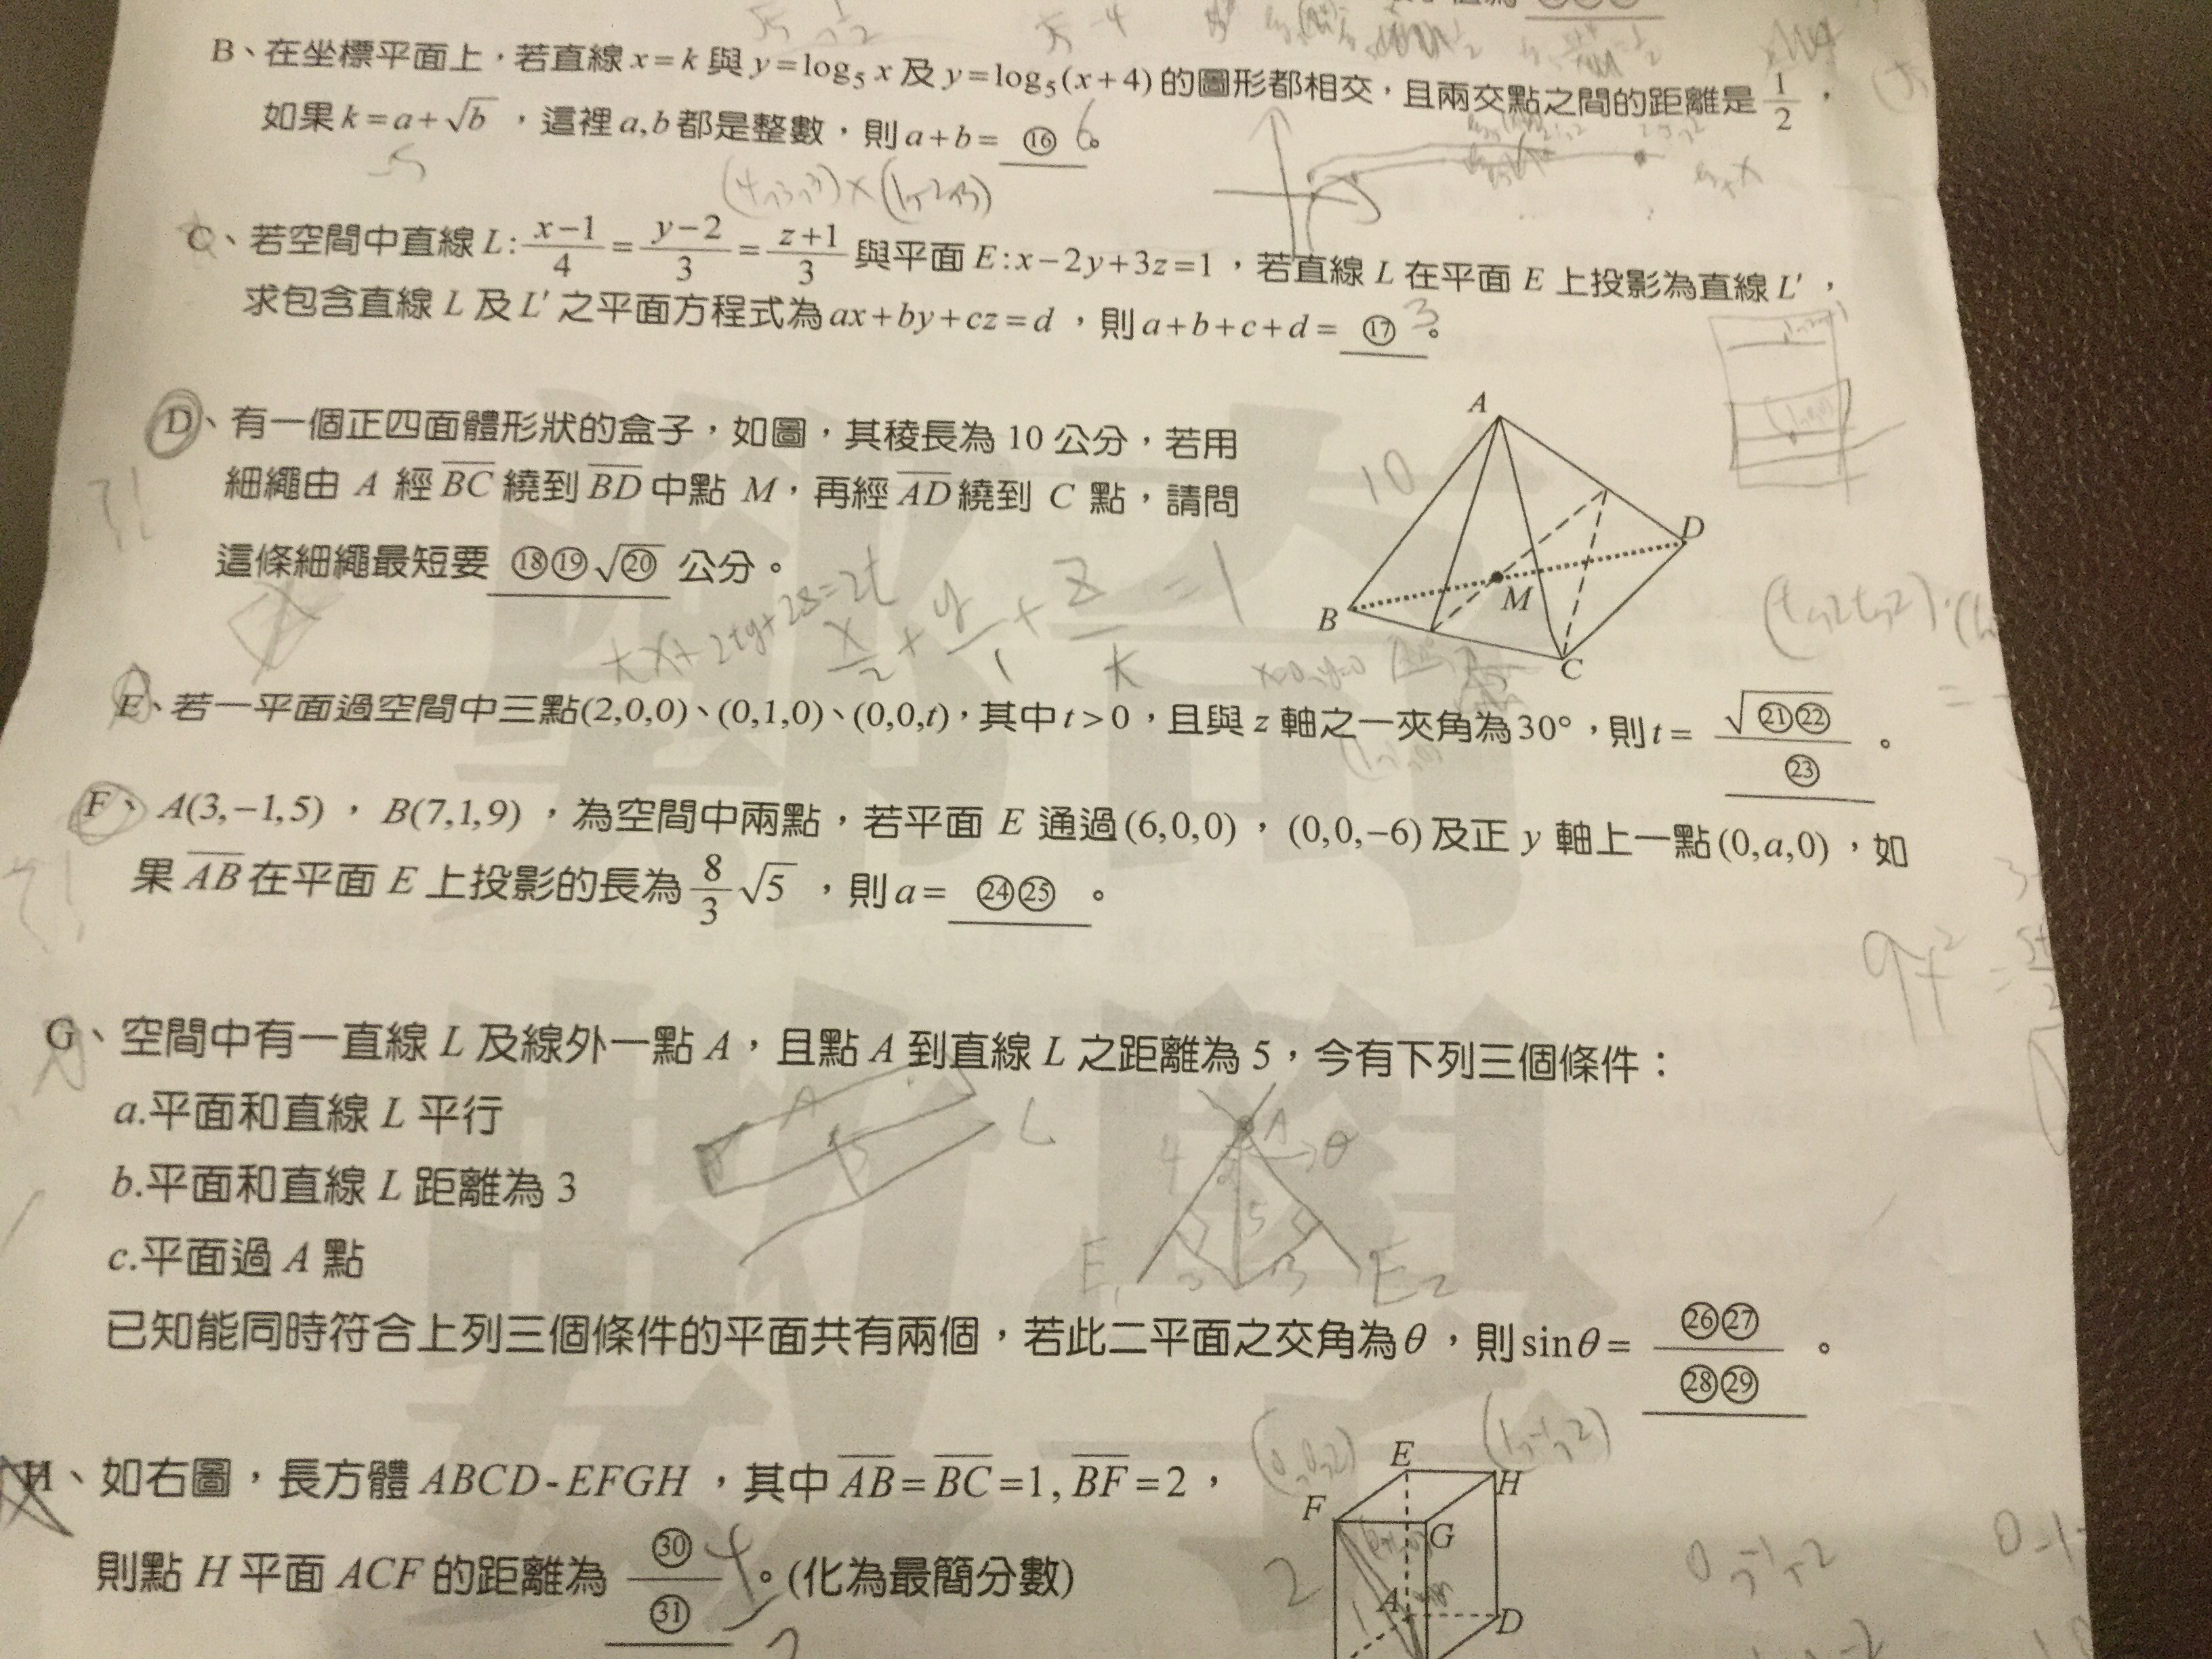 B、在坐標平面上，若直線 x=k 與 y=log₅ x 及 y=log₅(x+4) 的圖形都相交，且兩交點之間的距離是 1/2，
如果 k=a+√b ，這裡 a,b 都是整數，則 a+b= ⑯ 6。
5
(4,3,3)×(1,-2,3)
C、若空間中直線 L: (x−1)/4 = (y−2)/3 = (z+1)/3 與平面 E:x−2y+3z=1，若直線 L 在平面 E 上投影為直線 L′，
求包含直線 L 及 L′ 之平面方程式為 ax+by+cz=d ，則 a+b+c+d= ⑰ 3。
D、有一個正四面體形狀的盒子，如圖，其稜長為 10 公分，若用
細繩由 A 經 BC 繞到 BD 中點 M，再經 AD 繞到 C 點，請問
這條細繩最短要 ⑱⑲√⑳ 公分。
A
10
D
M
B
C
x/2 + y/1 + z/t = 1
E、若一平面過空間中三點(2,0,0)、(0,1,0)、(0,0,t)，其中 t>0，且與 z 軸之一夾角為30°，則 t= √㉑㉒/㉓ 。
F、A(3,−1,5) ，B(7,1,9) ，為空間中兩點，若平面 E 通過(6,0,0)，(0,0,−6)及正 y 軸上一點(0,a,0)，如
果 AB 在平面 E 上投影的長為 8/3 √5 ，則 a= ㉔㉕ 。
G、空間中有一直線 L 及線外一點 A，且點 A 到直線 L 之距離為 5，今有下列三個條件：
a.平面和直線 L 平行
b.平面和直線 L 距離為 3
c.平面過 A 點
A
5
L
A
θ
4
5
3
3
E₁
E₂
已知能同時符合上列三個條件的平面共有兩個，若此二平面之交角為θ，則 sinθ= ㉖㉗/㉘㉙ 。
H、如右圖，長方體 ABCD-EFGH ，其中 AB=BC=1, BF=2，
則點 H 平面 ACF 的距離為 ㉚/㉛ 。(化為最簡分數)
4
(0,0,2)
(1,-1,2)
E
H
F
G
2
1
A
D
0,-1,2